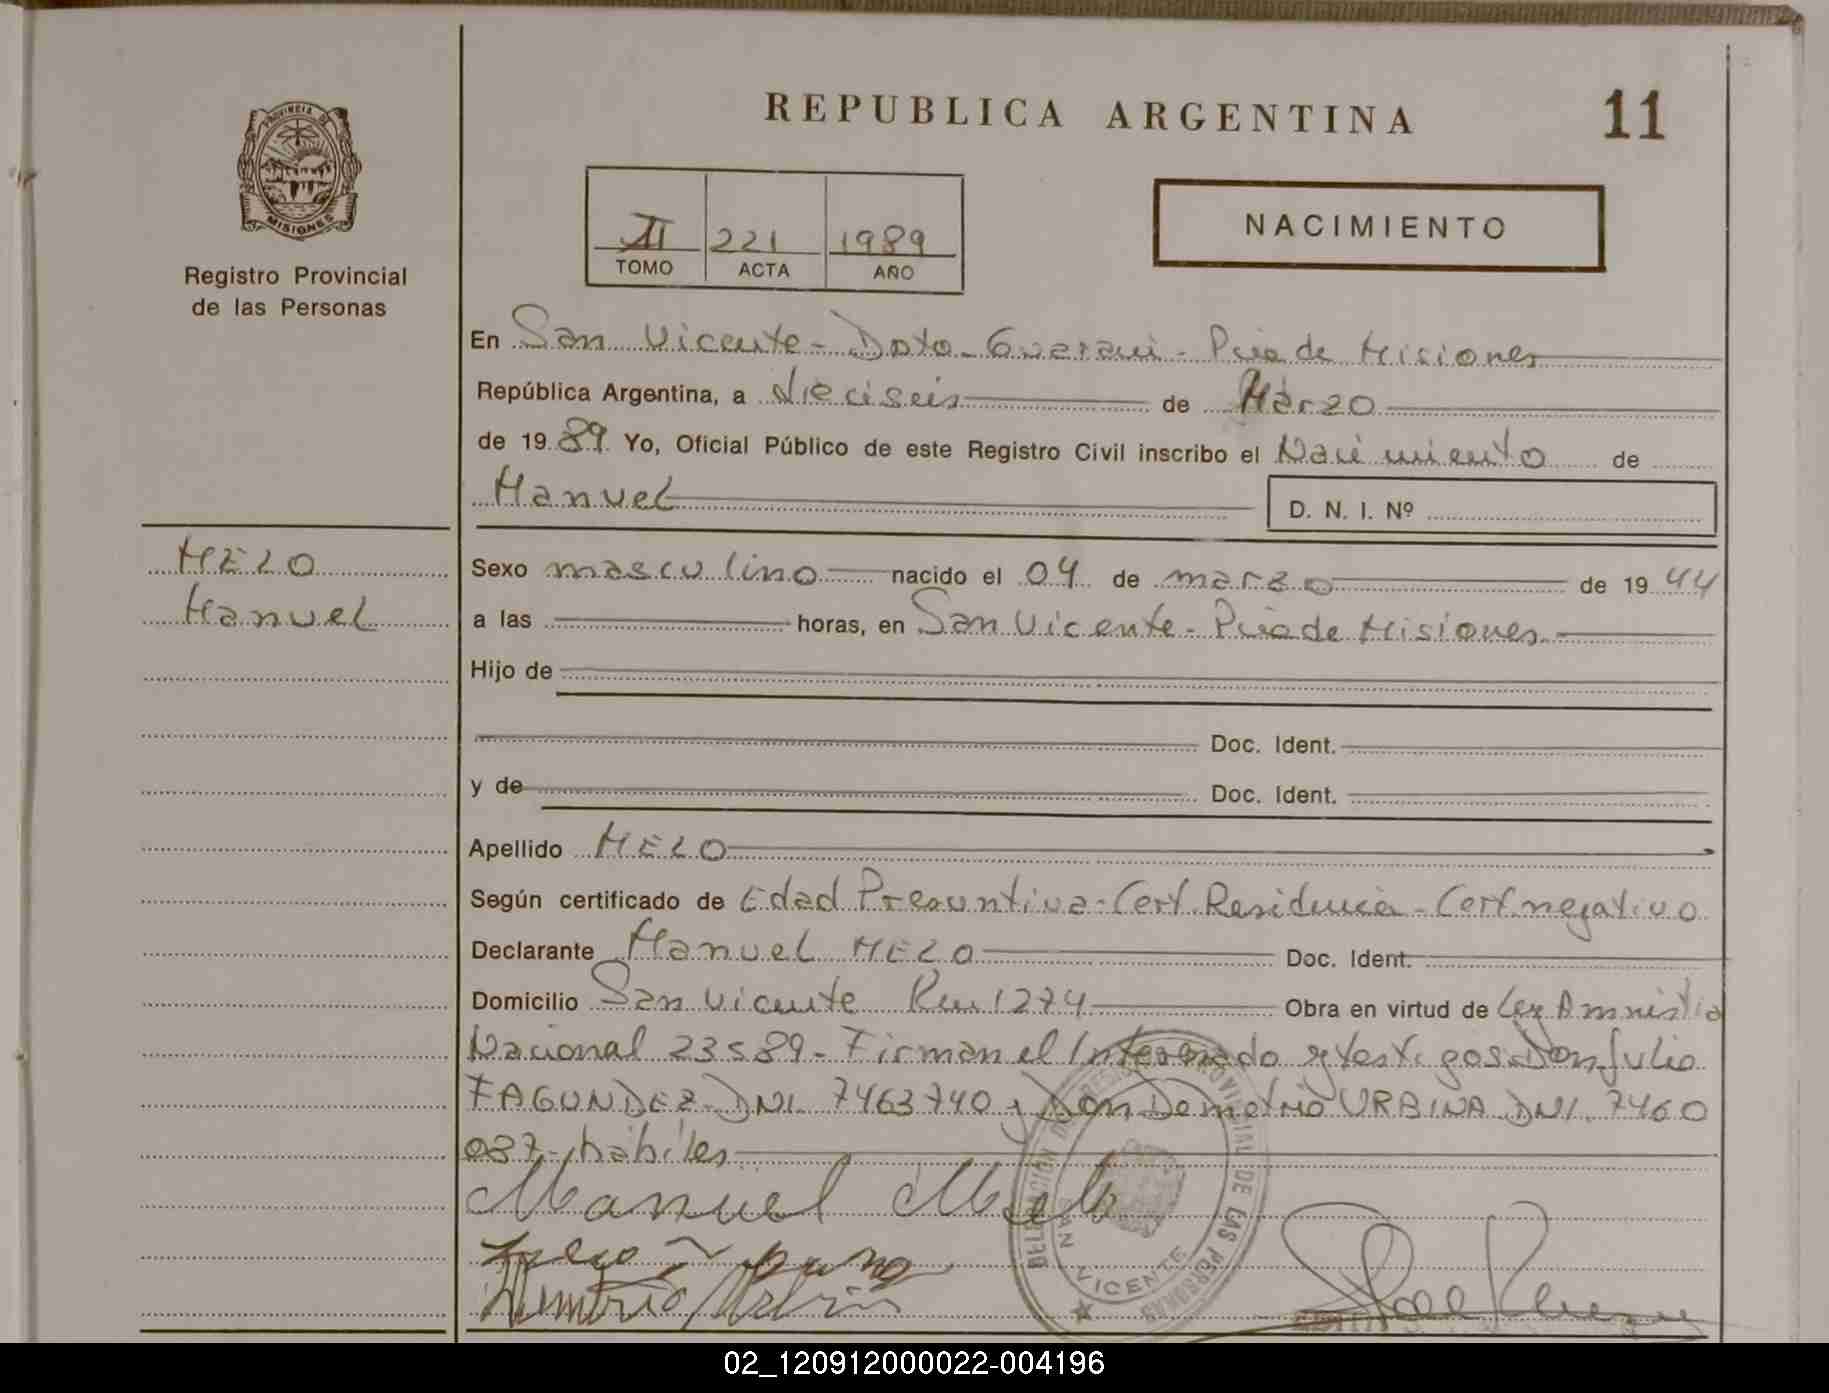 REPUBLICA ARGENTINA
11
PROVINCIA DE
MISIONES
Registro Provincial
de las Personas
II 221 1989
TOMO ACTA AÑO
NACIMIENTO
En San Vicente - Dpto. Guarani - Pcia de Misiones
República Argentina, a dieciseis de Marzo
de 1989 Yo, Oficial Público de este Registro Civil inscribo el Nacimiento de
Manuel D. N. I. Nº
MELO
Manuel
Sexo masculino nacido el 04 de marzo de 1944
a las horas, en San Vicente - Pcia de Misiones
Hijo de
Doc. Ident.
y de Doc. Ident.
Apellido MELO
Según certificado de Edad Presuntiva - Cert. Residencia - Cert. negativo
Declarante Manuel MELO Doc. Ident.
Domicilio San Vicente 1274 Obra en virtud de Ley Amnistia
Nacional 23589 - Firman el Interesado y testigos Don Julio
FAGUNDEZ - DNI. 7463740 y Don Demetrio URBINA DNI. 7460
037 - habiles
Manuel Melo
DELEGACIÓN DE REGISTRO PROVINCIAL DE LAS PERSONAS
SAN VICENTE
02_120912000022-004196